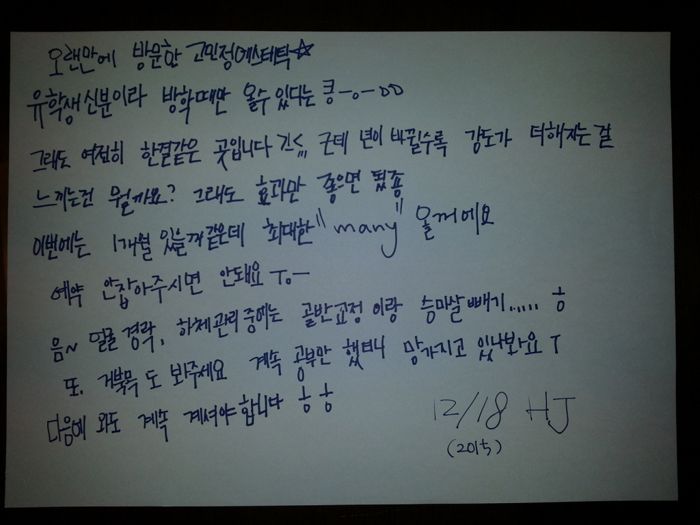 오랜만에 방문한 고민정에스테틱☆
유학생신분이라 방학때만 올수 있다는 킁-.o-DD
그래도 여전히 한결같은 곳입니다 긋,,, 군데 년이 바뀔수록 강도가 더해지는걸
느끼는건 뭘까요? 그래도 효과만 좋으면 됐죵
이번에는 1개월 있을꺼같은데 최대한 "many" 올께에요
예약 안잡아주시면 안돼요 ToT
음~ 얼굴 경락, 하체관리 중에는 골반교정 이랑 승마살 빼기...... ㅎ
또. 거북목 도 봐주세요 계속 공부만 했더니 망가지고 있나봐요 T
다음에 와도 계속 계셔야합니다 ㅎㅎ
12/18 HJ
(2015)